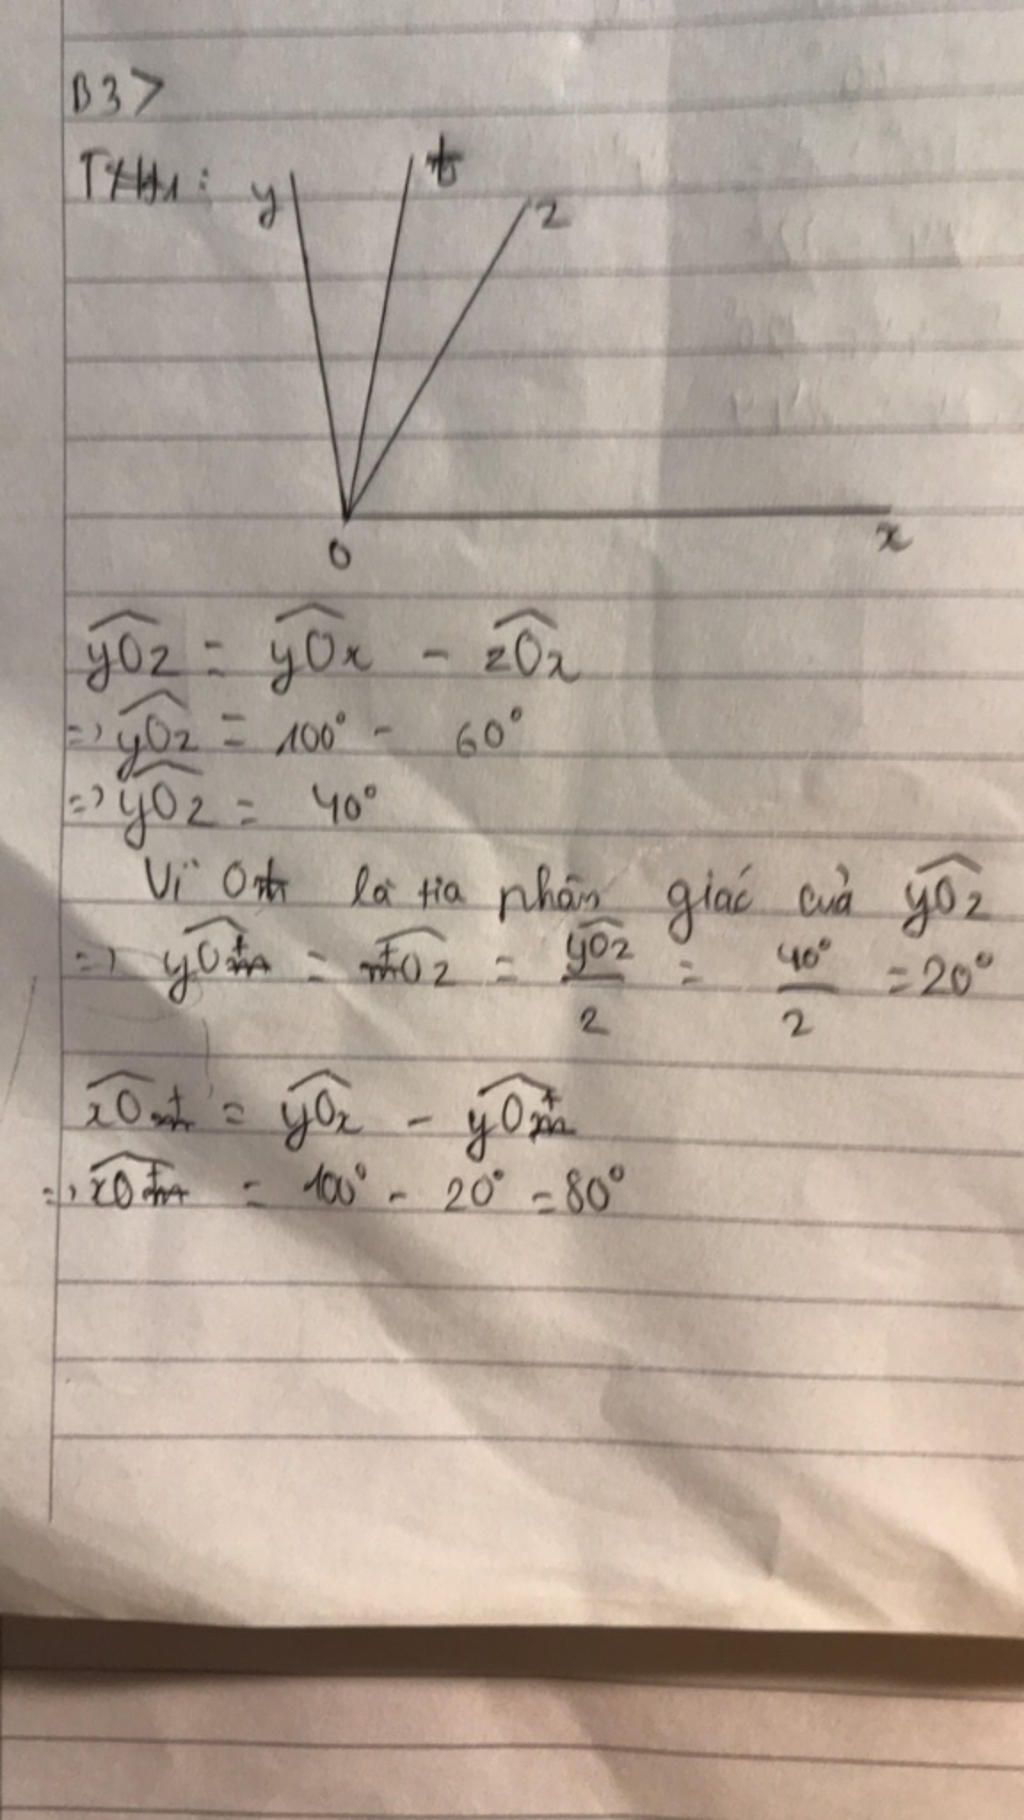 B3>
TXH1:
y t z
O x
yOz = yOx - zOx
=> yOz = 100° - 60°
=> yOz = 40°
Vì Ot là tia phân giác của yOz
=> yOt = tOz = yOz/2 = 40°/2 = 20°
xOt = yOx - yOt
=> xOt = 100° - 20° = 80°